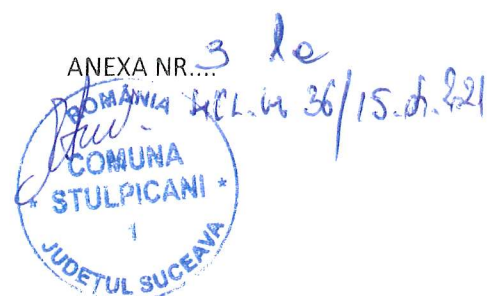 ANEXA NR.... 3 la
HCL. nr 36/15.
ROMÂNIA
COMUNA
* STULPICANI *
1
JUDEŢUL SUCEAVA